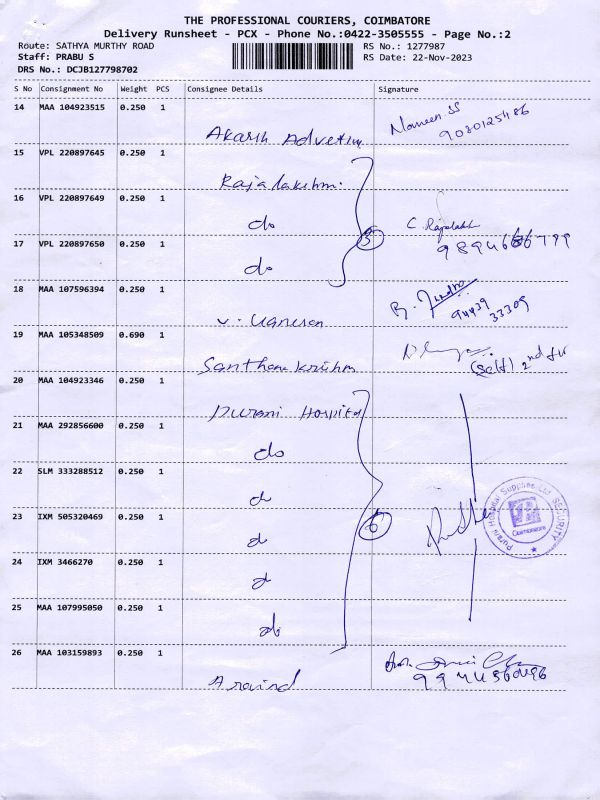 THE PROFESSIONAL COURIERS, COIMBATORE
Delivery Runsheet - PCX - Phone No.:0422-3505555 - Page No.:2
Route: SATHYA MURTHY ROAD RS No.: 1277987
Staff: PRABU S RS Date: 22-Nov-2023
DRS No.: DCJB127798702
S No Consignment No Weight PCS Consignee Details Signature
14 MAA 104923515 0.250 1
Naveen.SS
9080125486
Akarsh
15 VPL 220897645 0.250 1
Rajalakshmi.
16 VPL 220897649 0.250 1
do
C. Rajalakshmi
17 VPL 220897650 0.250 1
3
do
18 MAA 107596394 0.250 1
94439
33309
19 MAA 105348509 0.690 1
(self) 2nd
20 MAA 104923346 0.250 1
Purani Hospital
21 MAA 292856600 0.250 1
do
22 SLM 333288512 0.250 1
d
23 IXM 505320469 0.250 1
6
d
Purani Hospital Supplies Ltd SECURITY
Coimbatore
24 IXM 3466270 0.250 1
d
25 MAA 107995050 0.250 1
do
26 MAA 103159893 0.250 1
Aravind